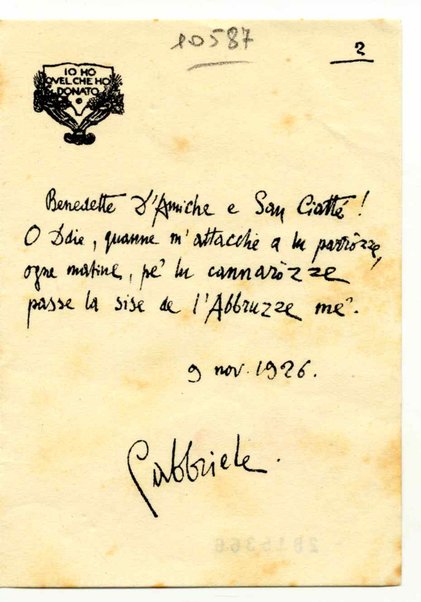 10587
2
IO HO
QVEL CHE HO
DONATO
Benedette D'Amiche e San Ciatté!
O Ddie, quanne m'attacche a lu parròzze,
ogne matine, pe' lu cannaròzze
passe la sise de l'Abbruzze me'.
9 nov. 1926.
Gabbriele.